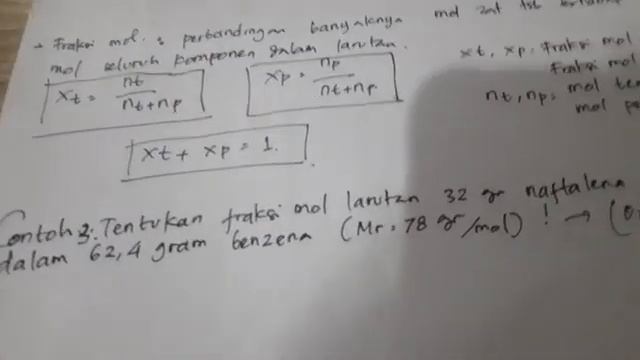 → Fraksi mol : perbandingan banyaknya mol zat tsb
mol seluruh komponen dalam larutan.
xt = nt / nt+np
xp = np / nt+np
xt + xp = 1.
xt, xp : fraksi mol
fraksi mol
nt, np : mol
mol
Contoh 3: Tentukan fraksi mol larutan 32 gr naftalena
dalam 62,4 gram benzena (Mr = 78 gr/mol) ! → (0